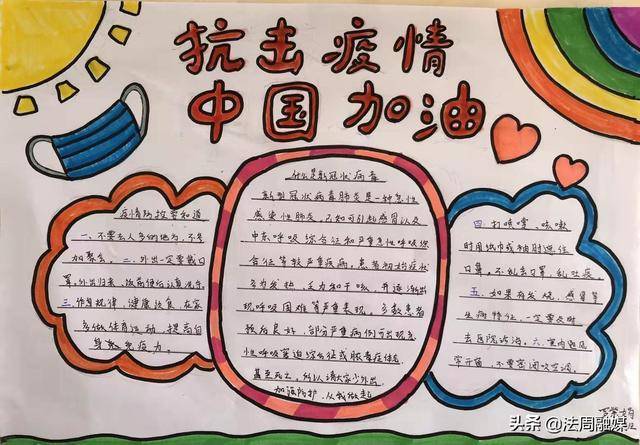 抗击疫情
中国加油
疫情防控要知道
一、不要去人多的地方,不参
加聚会 二、外出一定要戴口
罩,外出归来,
三、作息规律,健康饮食,在家
多做体育运动,提高自
身免疫力。
什么是新冠状病毒
新型冠状病毒肺炎是一种急性
感染性肺炎,不如可引起感冒以及
中东呼吸综合征和严重急性呼吸综
合征等较严重疾病,患者初始症状
多为发热,乏力和干咳,并逐渐出
现呼吸困难等严重表现。多数患者
预后良好,部分严重病例可出现急
性呼吸窘迫综合征或脓毒症休克
甚至死亡,所以请大家少外出,
加强防护,从我做起
四、打喷嚏、咳嗽
时用纸巾或袖肘遮住
口鼻,不乱丢口罩,乱吐痰
五、如果有发烧、感冒等
生病特征,一定要及时
去医院诊治。六、室内
不要密闭吹空调。
头条@法周融媒